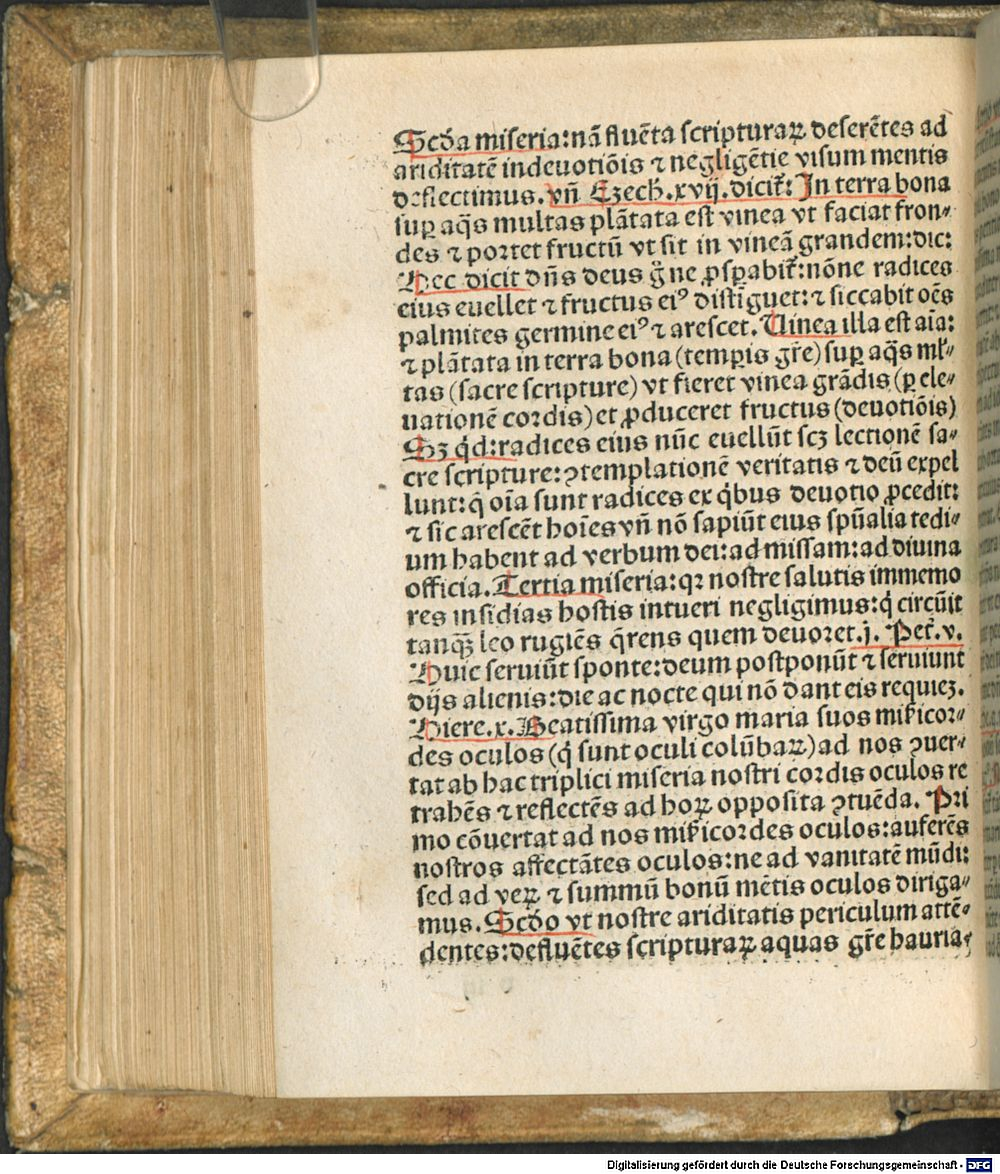 Scďa miseria: nã fluẽta scripturaꝝ deserẽtes ad
ariditatẽ indeuotiõis ⁊ negligẽtie visum mentis
deflectimus. vñ Ezech. xvij. dicit̃: In terra bona
suꝑ aq̃s multas plãtata est vinea vt faciat fron⸗
des ⁊ portet fructũ vt sit in vineã grandem: dic:
Hec dicit dñs deus g̃ ne ꝓsꝑabit̃: nõne radices
eius euellet ⁊ fructus eiꝰ distĩguet: ⁊ siccabit oẽs
palmites germine eiꝰ ⁊ arescet. Uinea illa est aĩa:
⁊ plãtata in terra bona (temꝑis gr̃e) suꝑ aq̃s ml̃⸗
tas (sacre scripture) vt fieret vinea grãdis (ꝑ ele⸗
uationẽ cordis) et ꝓduceret fructus (deuotiõis)
Sꝫ qď: radices eius nũc euellũt scꝫ lectionẽ sa⸗
cre scripture: ꝯtemplationẽ veritatis ⁊ deũ expel
lunt: q̃ oĩa sunt radices ex qͥbus deuotio ꝓcedit:
⁊ sic arescẽt hoĩes vñ nõ sapiũt eius spũalia tedi⸗
um habent ad verbum dei: ad missam: ad diuina
officia. Tertia miseria: qꝛ nostre salutis immemo
res insidias hostis intueri negligimus: qͥ circũit
tanqꝫ leo rugiẽs q̃rens quem deuoret. j. Pet̃. v.
Huic seruiũt sponte: deum postponũt ⁊ seruiunt
dijs alienis: die ac nocte qui nõ dant eis requieꝫ.
Hiere. x. Beatissima virgo maria suos mis̃icor⸗
des oculos (qͥ sunt oculi colũbaꝝ) ad nos ꝯuer⸗
tat ab hac triplici miseria nostri cordis oculos re
trahẽs ⁊ reflectẽs ad hoꝝ opposita ꝯtuẽda. Pri
mo cõuertat ad nos mis̃icordes oculos: auferẽs
nostros affectãtes oculos: ne ad vanitatẽ mũdi:
sed ad veꝝ ⁊ summũ bonũ mẽtis oculos diriga⸗
mus. Scďo vt nostre ariditatis periculum attẽ⸗
dentes: defluẽtes scripturaꝝ aquas gr̃e hauria⸗
Digitalisierung gefördert durch die Deutsche Forschungsgemeinschaft - DFG